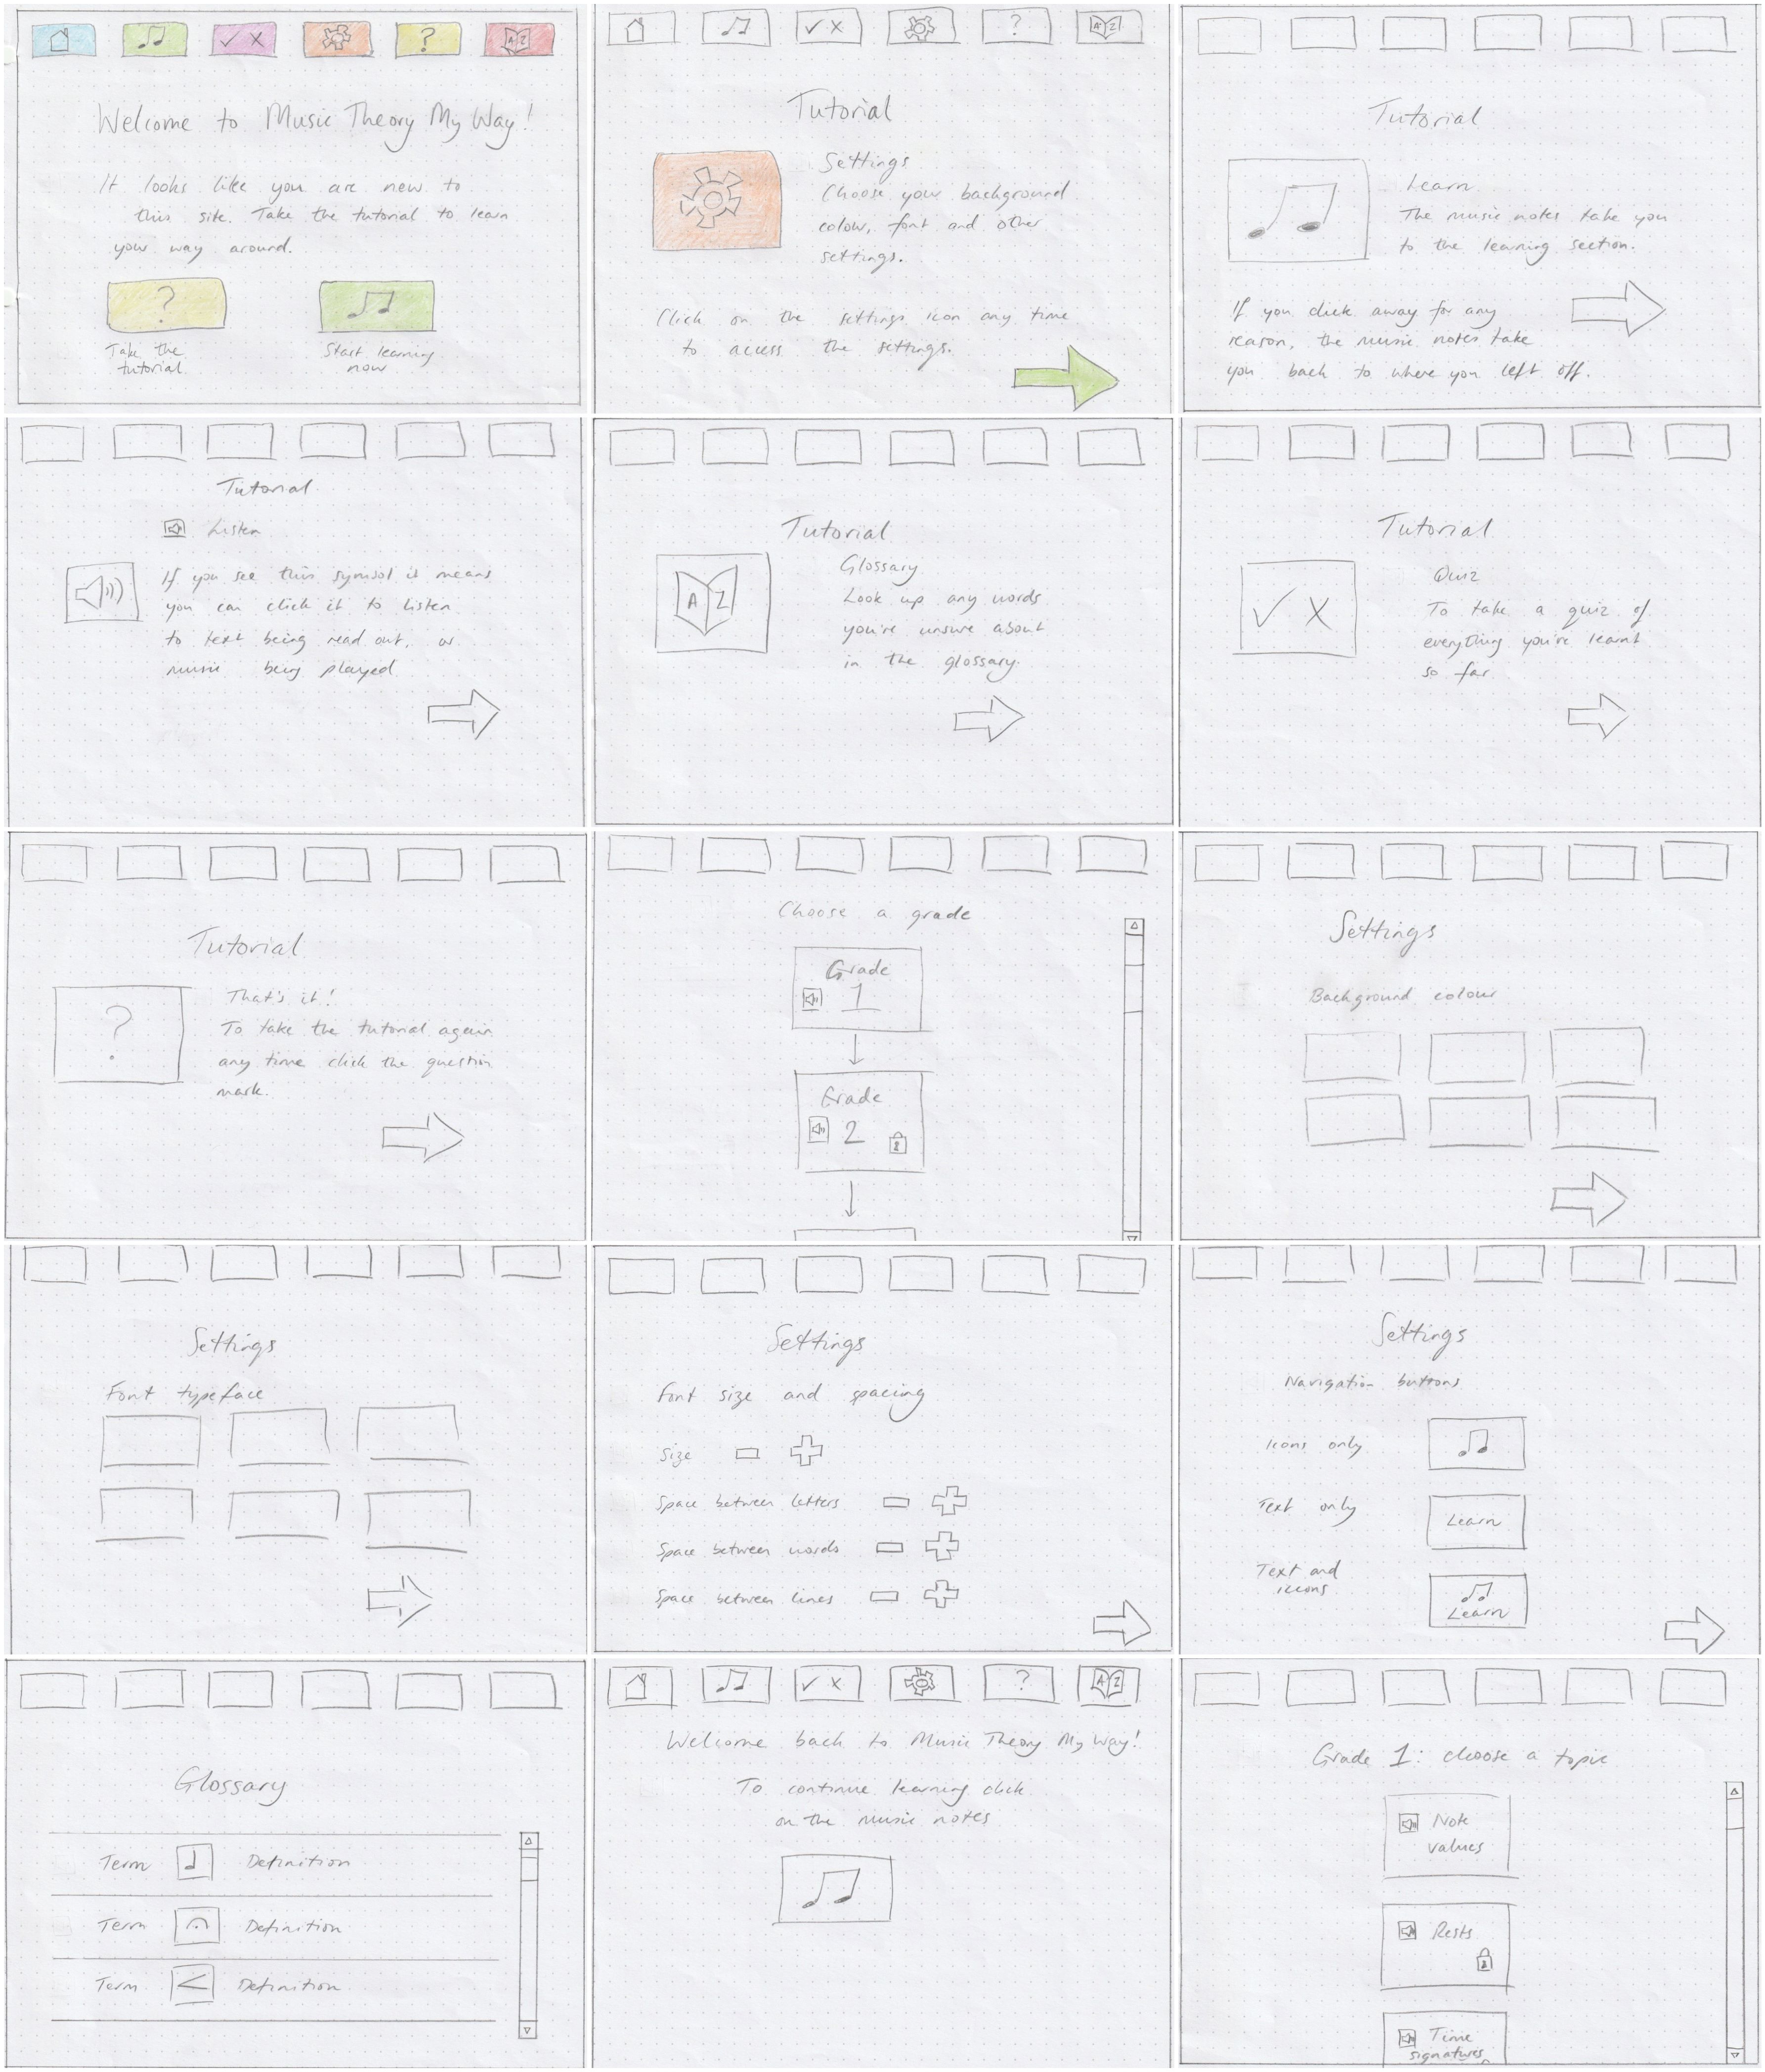 ?
A Z
Welcome to Music Theory My Way!
It looks like you are new to
this site. Take the tutorial to learn
your way around.
?
Take the
tutorial
Start learning
now
?
A Z
Tutorial
Settings
Choose your background
colour, font and other
settings.
Click on the settings icon any time
to access the settings.
Tutorial
Learn
The music notes take you
to the learning section.
If you click away for any
reason, the music notes take
you back to where you left off.
Tutorial
Listen
If you see this symbol it means
you can click it to listen
to text being read out, or
music being played
Tutorial
A Z
Glossary
Look up any words
you're unsure about
in the glossary.
Tutorial
Quiz
To take a quiz of
everything you're learnt
so far
Tutorial
?
That's it!
To take the tutorial again
any time click the question
mark.
Choose a grade
Grade
1
Grade
2
Settings
Background colour
Settings
Font typeface
Settings
Font size and spacing
Size
Space between letters
Space between words
Space between lines
Settings
Navigation buttons
Icons only
Text only
Learn
Text and
iccons
Learn
Glossary
Term Definition
Term Definition
Term Definition
?
A Z
Welcome back to Music Theory My Way!
To continue learning click
on the music notes
Grade 1: choose a topic
Note
values
Rests
Time
signatures